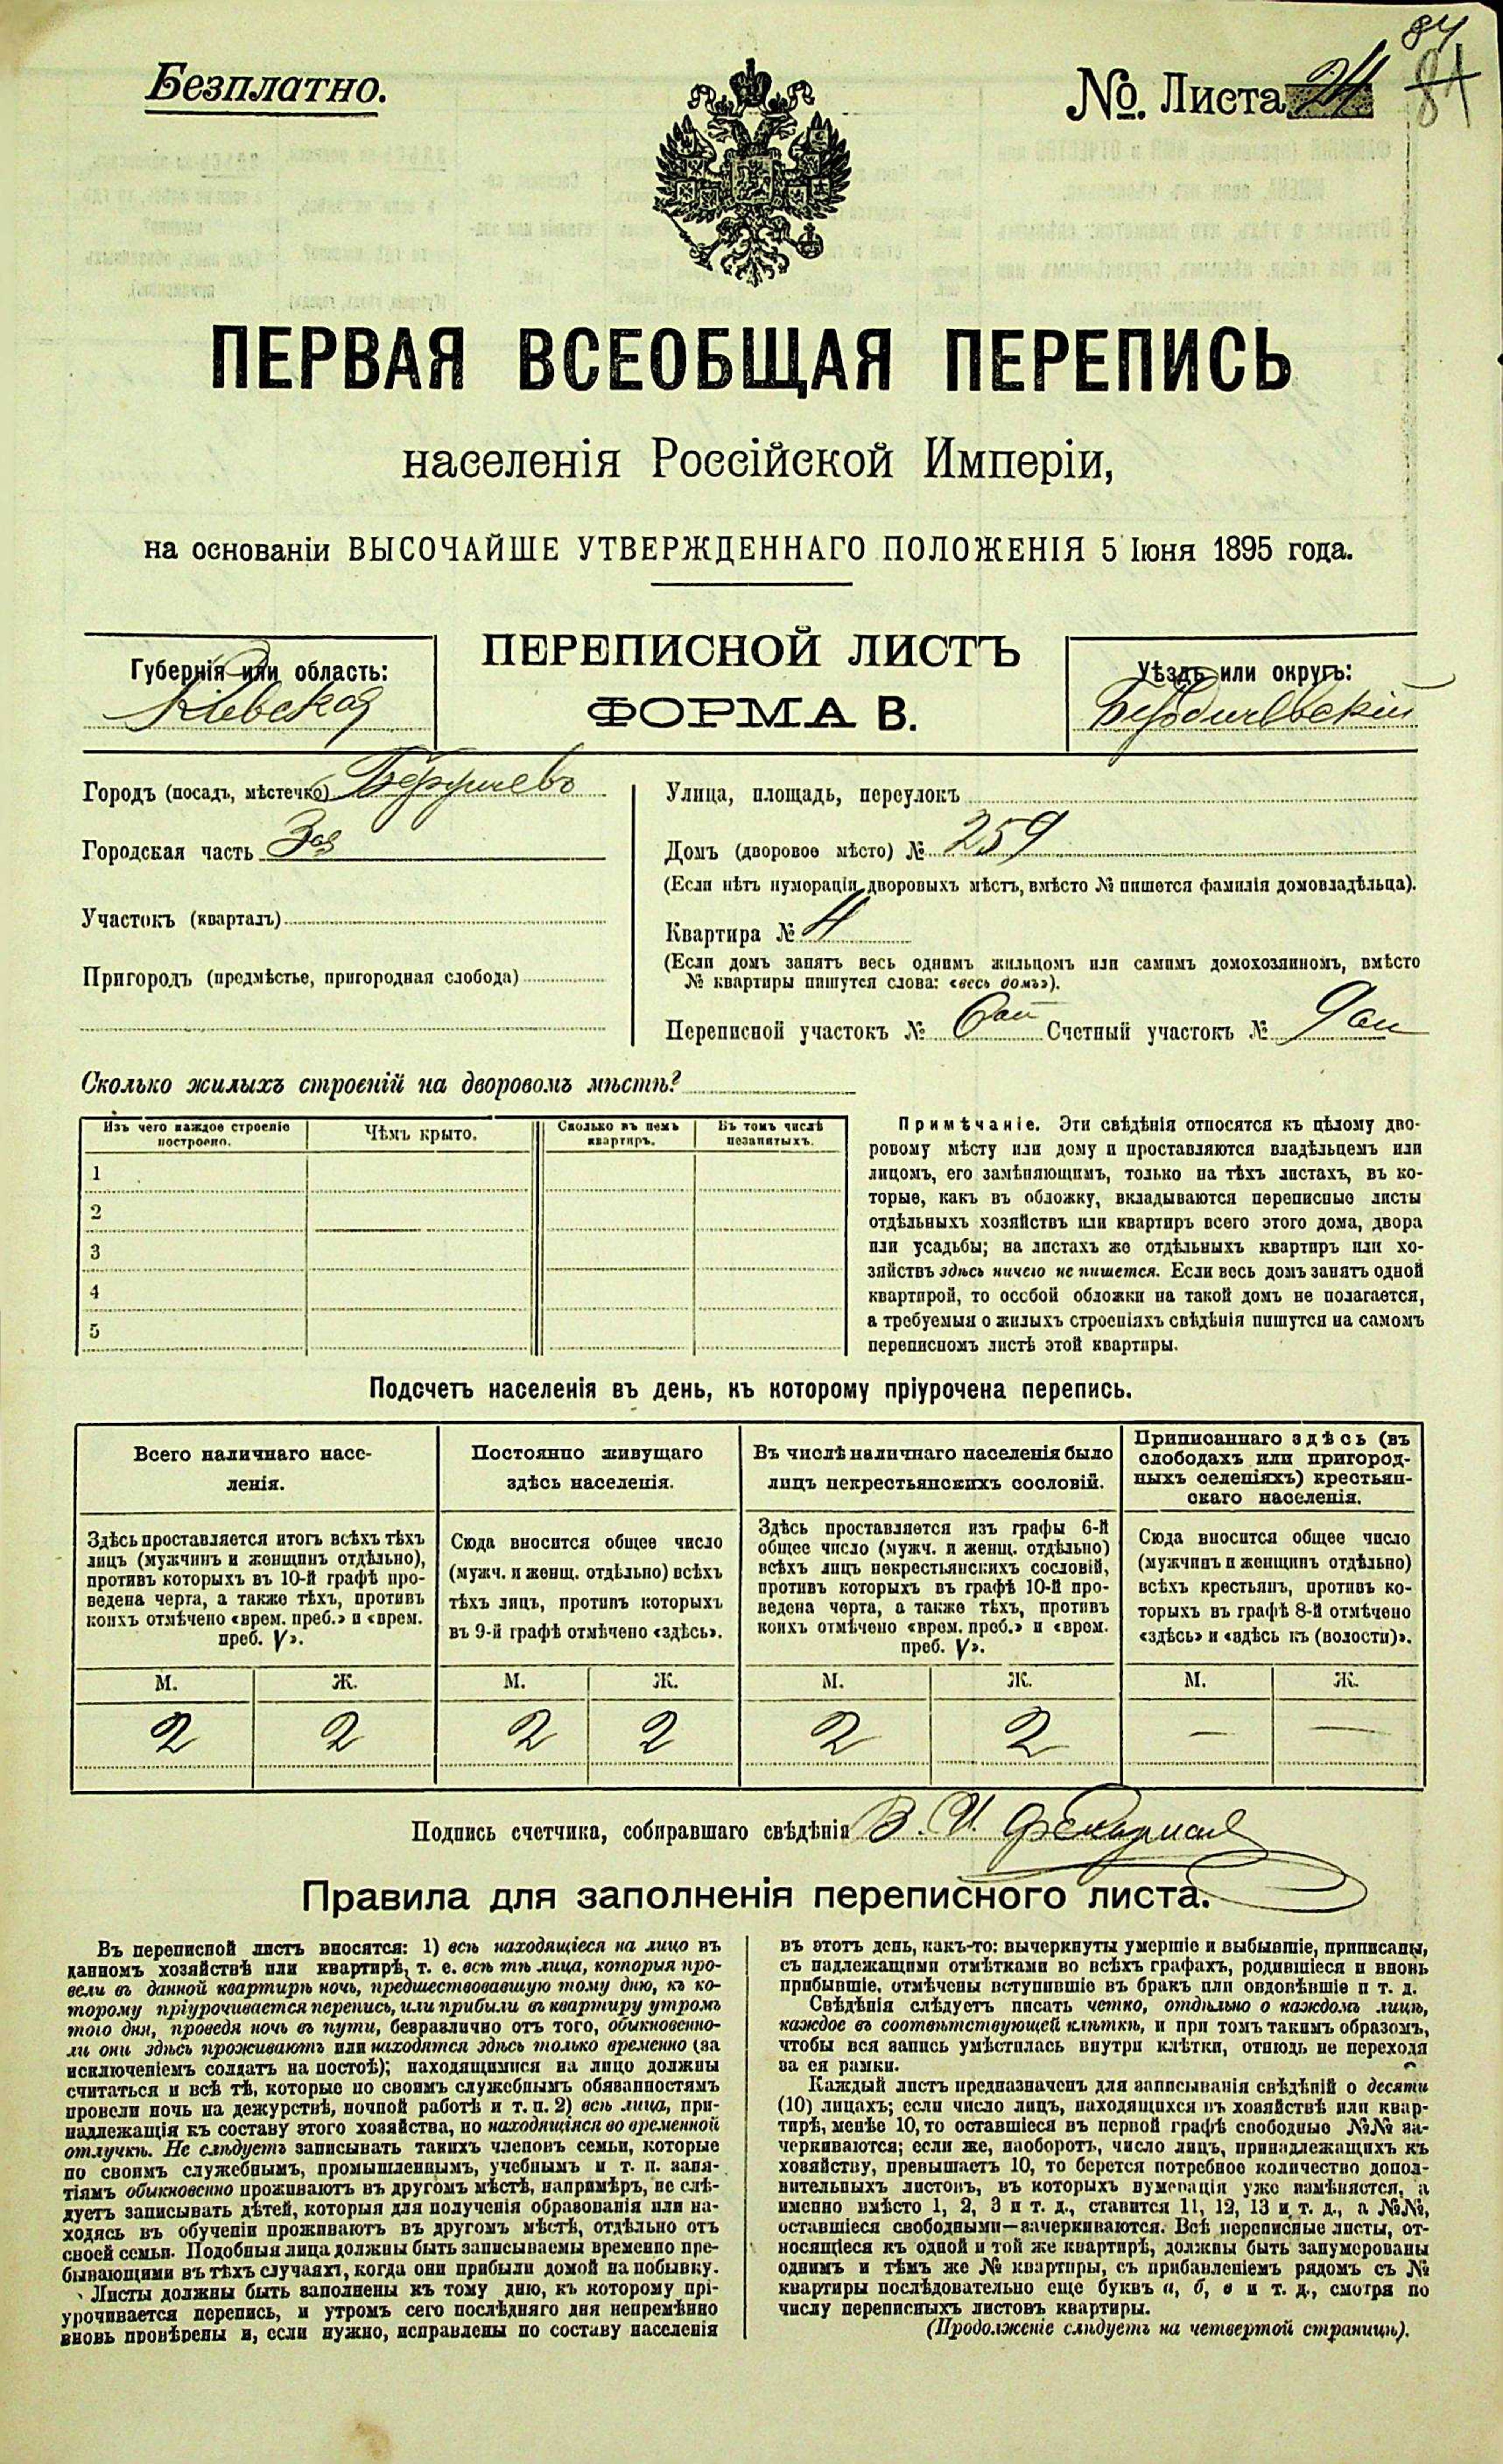 84
84
Безплатно.
№. Листа 24
ПЕРВАЯ ВСЕОБЩАЯ ПЕРЕПИСЬ
населенія Россійской Имперіи,
на основаніи ВЫСОЧАЙШЕ УТВЕРЖДЕННАГО ПОЛОЖЕНІЯ 5 Іюня 1895 года.
ПЕРЕПИСНОЙ ЛИСТЪ
ФОРМА В.
Губернія или область:
Кіевская
Уѣздъ или округъ:
Бердичевскій
Городъ (посадъ, мѣстечко)
Городская часть 3ая
Участокъ (кварталъ)
Пригородъ (предмѣстье, пригородная слобода)
Улица, площадь, переулокъ
Домъ (дворовое мѣсто) № 259
(Если нѣтъ нумораціи дворовыхъ мѣстъ, вмѣсто № пишется фамилія домовладѣльца).
Квартира № 4
(Если домъ занятъ весь однимъ жильцомъ или самимъ домохозяиномъ, вмѣсто
№ квартиры пишутся слова: «весь домъ»).
Переписной участокъ № 6ой Счетный участокъ № 9ый
Сколько жилыхъ строеній на дворовомъ мѣстѣ?
Изъ чего каждое строеніе построено.
Чѣмъ крыто.
Сколько въ немъ квартиръ.
Въ томъ числѣ незанятыхъ.
1
2
3
4
5
Примѣчаніе. Эти свѣдѣнія относятся къ цѣлому дво-
ровому мѣсту или дому и проставляются владѣльцемъ или
лицомъ, его замѣняющимъ, только на тѣхъ листахъ, въ ко-
торые, какъ въ обложку, вкладываются переписные листы
отдѣльныхъ хозяйствъ или квартиръ всего этого дома, двора
или усадьбы; на листахъ же отдѣльныхъ квартиръ или хо-
зяйствъ здѣсь ничего не пишется. Если весь домъ занятъ одной
квартирой, то особой обложки на такой домъ не полагается,
а требуемыя о жилыхъ строеніяхъ свѣдѣнія пишутся на самомъ
переписномъ листѣ этой квартиры.
Подсчетъ населенія въ день, къ которому пріурочена перепись.
Всего наличнаго насе-
ленія.
Постоянно живущаго
здѣсь населенія.
Въ числѣ наличнаго населенія было
лицъ некрестьянскихъ сословій.
Приписаннаго здѣсь (въ
слободахъ или пригород-
ныхъ селеніяхъ) крестьян-
скаго населенія.
Здѣсь проставляется итогъ всѣхъ тѣхъ
лицъ (мужчинъ и женщинъ отдѣльно),
противъ которыхъ въ 10-й графѣ про-
ведена черта, а также тѣхъ, противъ
коихъ отмѣчено «врем. преб.» и «врем.
преб. V».
Сюда вносится общее число
(мужч. и женщ. отдѣльно) всѣхъ
тѣхъ лицъ, противъ которыхъ
въ 9-й графѣ отмѣчено «здѣсь».
Здѣсь проставляется изъ графы 6-й
общее число (мужч. и женщ. отдѣльно)
всѣхъ лицъ некрестьянскихъ сословій,
противъ которыхъ въ графѣ 10-й про-
ведена черта, а также тѣхъ, противъ
коихъ отмѣчено «врем. преб.» и «врем.
преб. V».
Сюда вносится общее число
(мужчинъ и женщинъ отдѣльно)
всѣхъ крестьянъ, противъ ко-
торыхъ въ графѣ 8-й отмѣчено
«здѣсь» и «здѣсь къ (волости)».
М. Ж. М. Ж. М. Ж. М. Ж.
2 2 2 2 2 2 — —
Подпись счетчика, собиравшаго свѣдѣнія В. И. Фельдман
Правила для заполненія переписного листа.
Въ переписной листъ вносятся: 1) всѣ находящіеся на лицо въ
данномъ хозяйствѣ или квартирѣ, т. е. всѣ тѣ лица, которыя про-
вели въ данной квартирѣ ночь, предшествовавшую тому дню, къ ко-
торому пріурочивается перепись, или прибыли въ квартиру утромъ
того дня, проведя ночь въ пути, безразлично отъ того, обыкновенно-
ли они здѣсь проживаютъ или находятся здѣсь только временно (за
исключеніемъ солдатъ на постоѣ); находящимися на лицо должны
считаться и всѣ тѣ, которые по своимъ служебнымъ обязанностямъ
провели ночь на дежурствѣ, ночной работѣ и т. п. 2) всѣ лица, при-
надлежащія къ составу этого хозяйства, но находящіяся во временной
отлучкѣ. Не слѣдуетъ записывать такихъ членовъ семьи, которые
по своимъ служебнымъ, промышленнымъ, учебнымъ и т. п. заня-
тіямъ обыкновенно проживаютъ въ другомъ мѣстѣ, напримѣръ, не слѣ-
дуетъ записывать дѣтей, которыя для полученія образованія или на-
ходясь въ обученіи проживаютъ въ другомъ мѣстѣ, отдѣльно отъ
своей семьи. Подобныя лица должны быть записываемы временно пре-
бывающими въ тѣхъ случаяхъ, когда они прибыли домой на побывку.
Листы должны быть заполнены къ тому дню, къ которому прі-
урочивается перепись, и утромъ сего послѣдняго дня непремѣнно
вновь провѣрены и, если нужно, исправлены по составу населенія
въ этотъ день, какъ-то: вычеркнуты умершіе и выбывшіе, приписаны,
съ надлежащими отмѣтками во всѣхъ графахъ, родившіеся и вновь
прибывшіе, отмѣчены вступившіе въ бракъ или овдовѣвшіе и т. д.
Свѣдѣнія слѣдуетъ писать четко, отдѣльно о каждомъ лицѣ,
каждое въ соотвѣтствующей клѣткѣ, и при томъ такимъ образомъ,
чтобы вся запись умѣстилась внутри клѣтки, отнюдь не переходя
за ея рамки.
Каждый листъ предназначенъ для записыванія свѣдѣній о десяти
(10) лицахъ; если число лицъ, находящихся въ хозяйствѣ или квар-
тирѣ, менѣе 10, то оставшіеся въ первой графѣ свободные №№ за-
черкиваются; если же, наоборотъ, число лицъ, принадлежащихъ къ
хозяйству, превышаетъ 10, то берется потребное количество допол-
нительныхъ листовъ, въ которыхъ нумерація уже измѣняется, а
именно вмѣсто 1, 2, 3 и т. д., ставится 11, 12, 13 и т. д., а №№,
оставшіеся свободными—зачеркиваются. Всѣ переписные листы, от-
носящіеся къ одной и той же квартирѣ, должны быть занумерованы
однимъ и тѣмъ же № квартиры, съ прибавленіемъ рядомъ съ №
квартиры послѣдовательно еще буквъ а, б, в и т. д., смотря по
числу переписныхъ листовъ квартиры.
(Продолженіе слѣдуетъ на четвертой страницѣ).